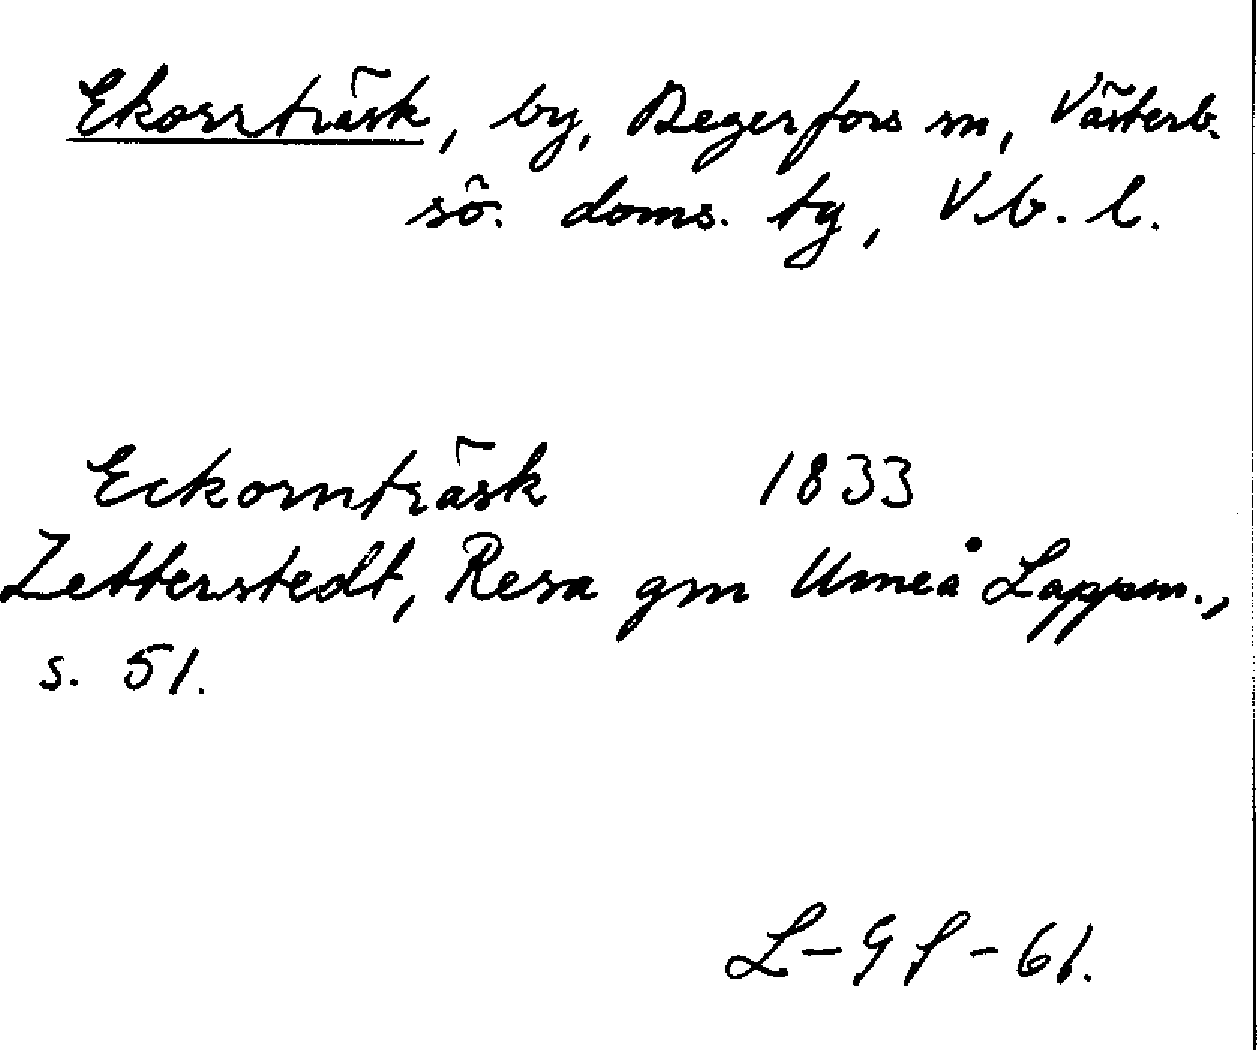 Ekorrträsk, by, Degerfors sn, Västerb.
sö. doms. tg, Vb. l.
Eckornträsk 1833
Zetterstedt, Resa gm Umeå Lappm.,
s. 51.
L-GS-61.